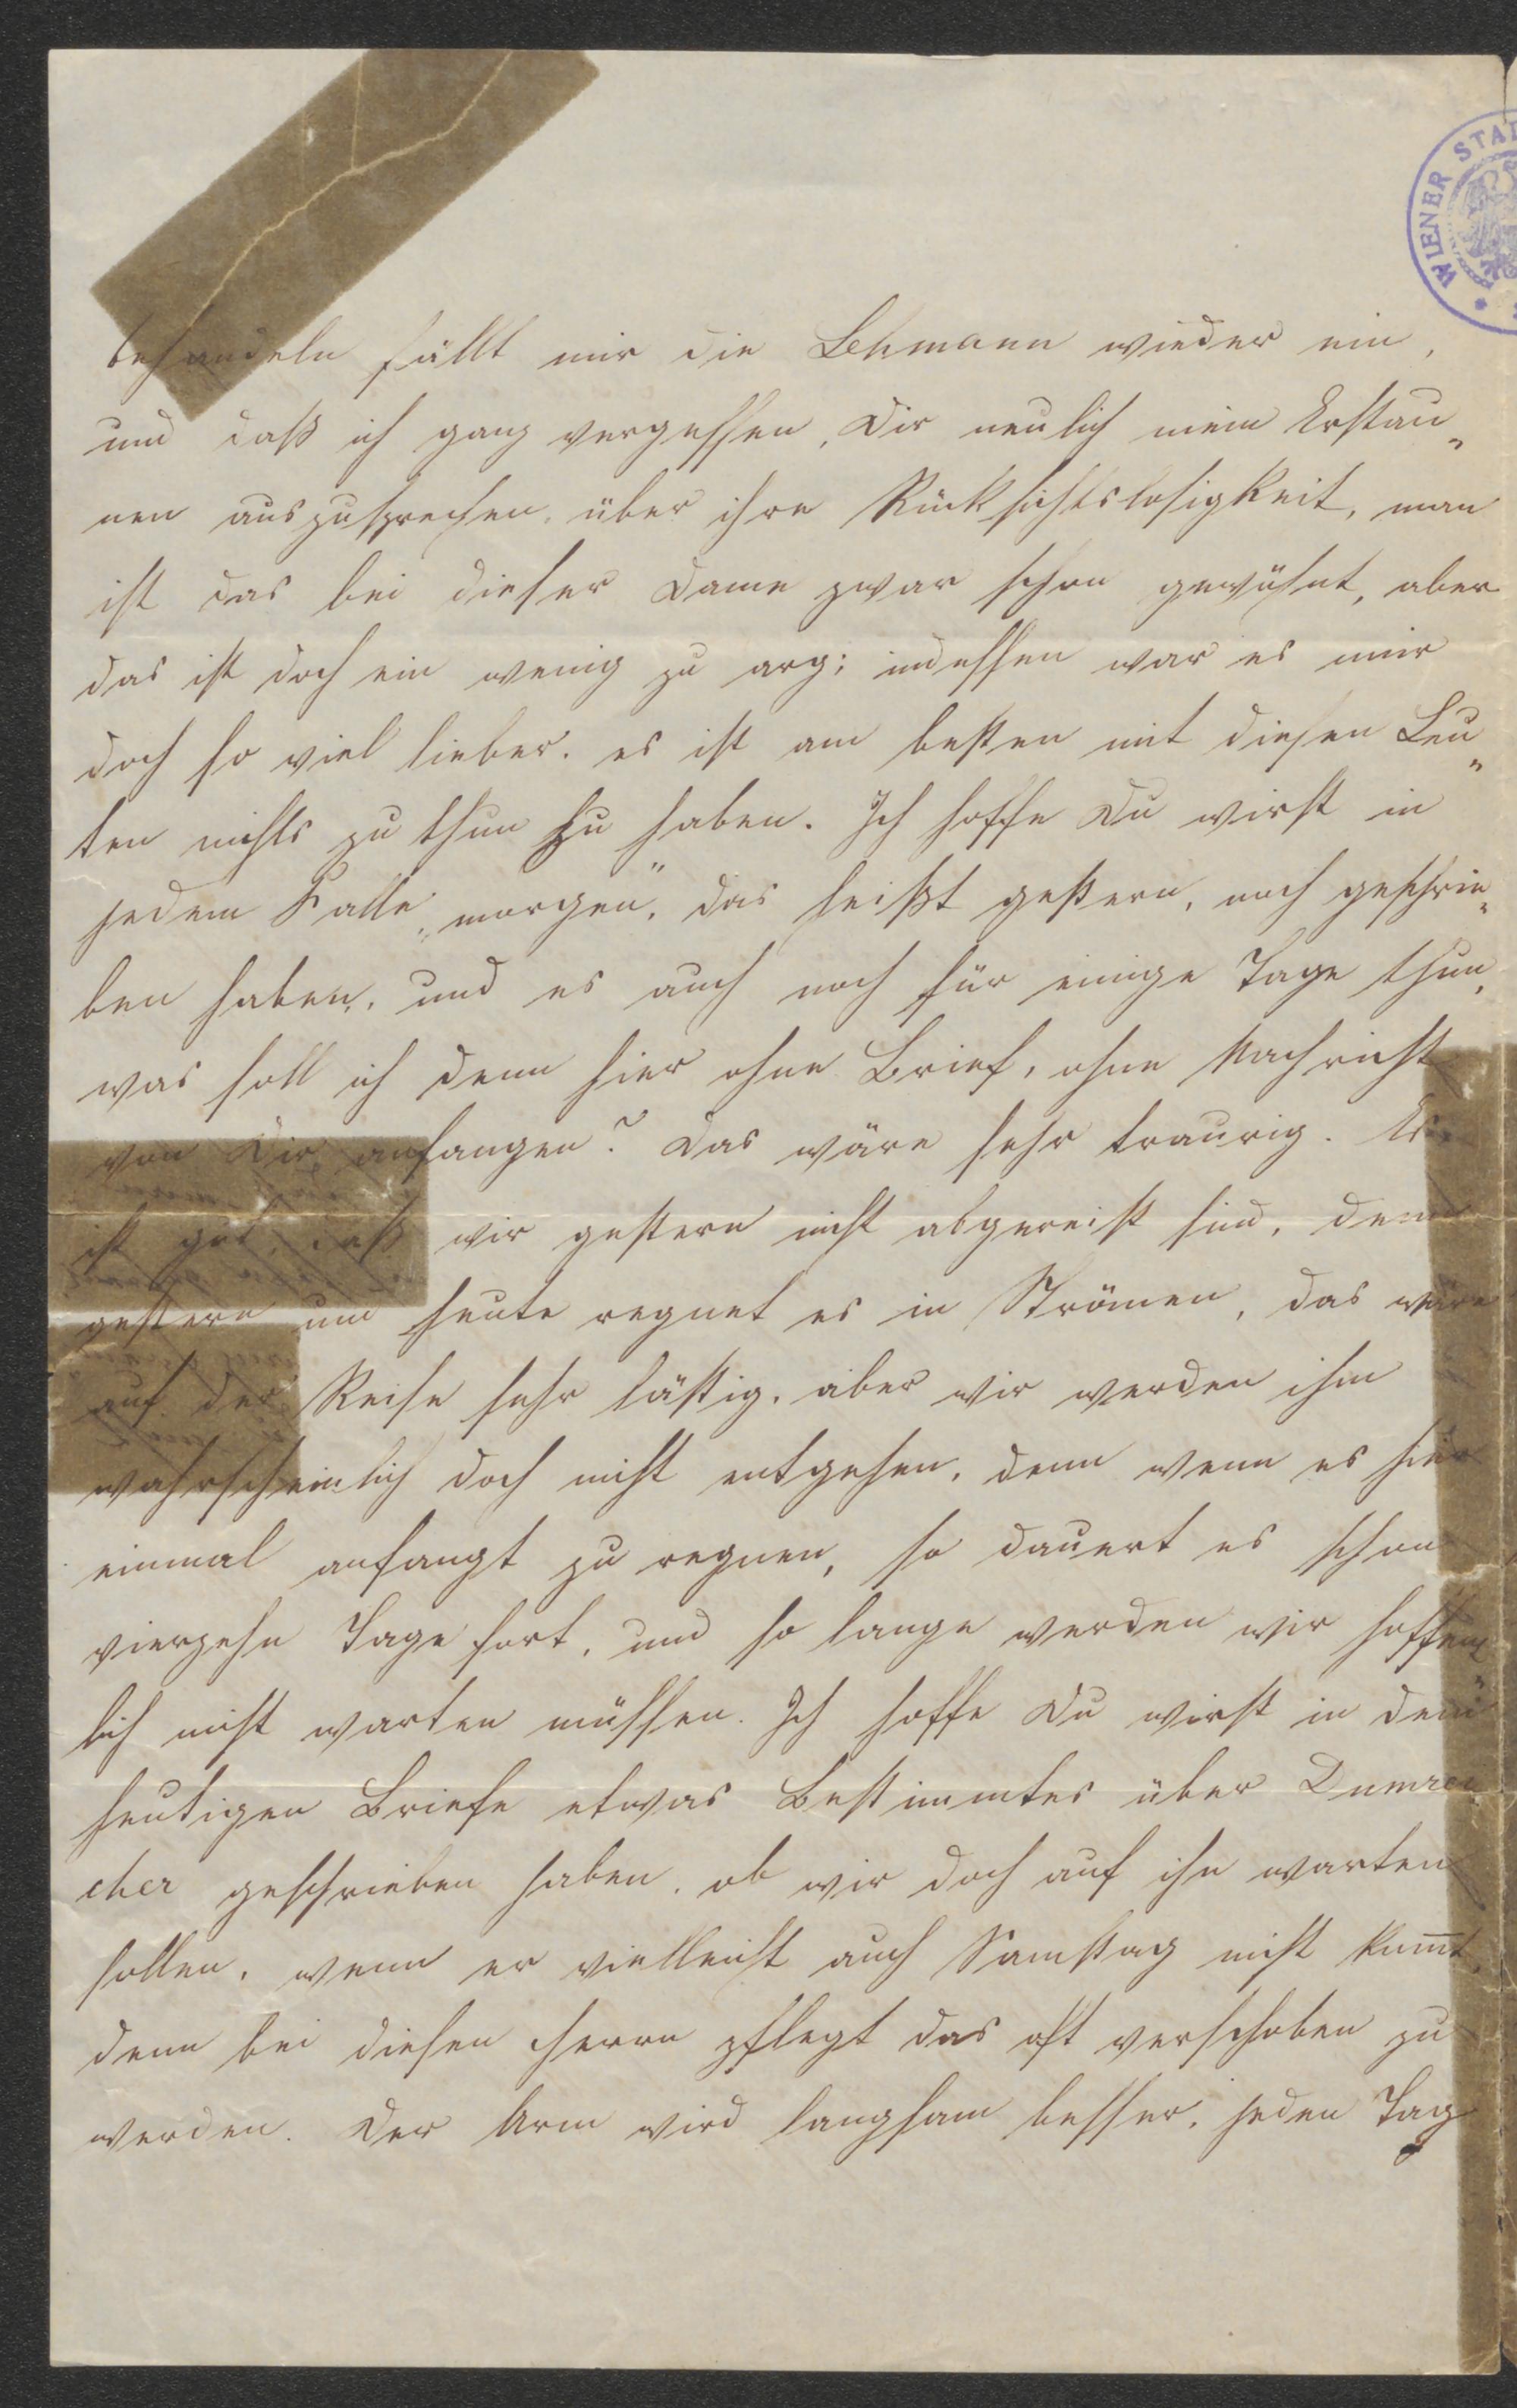 WIENER STA
behandeln fällt mir die Lehmann wieder ein,
und daß ich ganz vergessen, Dir neulich mein Erstau„
nen auszusprechen, über ihre Rücksichtslosigkeit, man
ist das bei dieser Dame zwar schon gewöhnt, aber
das ist doch ein wenig zu arg; indessen war es mir
doch so viel lieber. es ist am besten mit diesen Leu„
ten nichts zu thun zu haben. Ich hoffe Du wirst in
jedem Falle „morgen“, das heißt gestern, noch geschrie„
ben haben, und es auch noch für einige Tage thun,
was soll ich denn hier ohne Brief, ohne Nachricht
von Dir, anfangen? Das wäre sehr traurig. Es
ist gut, daß wir gestern nicht abgereist sind, denn
gestern und heute regnet es in Strömen, das wäre
auf der Reise sehr lästig, aber wir werden ihm
wahrscheinlich doch nicht entgehen, denn wenn es hier
einmal anfangt zu regnen, so dauert es schon
vierzehn Tage fort, und so lange werden wir hoffent„
lich nicht warten müssen. Ich hoffe Du wirst in dem
heutigen Briefe etwas Bestimmtes über Dumrei„
cher geschrieben haben, ob wir doch auf ihn warten
sollen, wenn er vielleicht auch Samstag nicht kom̅t,
denn bei diesen Herrn pflegt das oft verschoben zu
werden. Der Arm wird langsam besser, jeden Tag